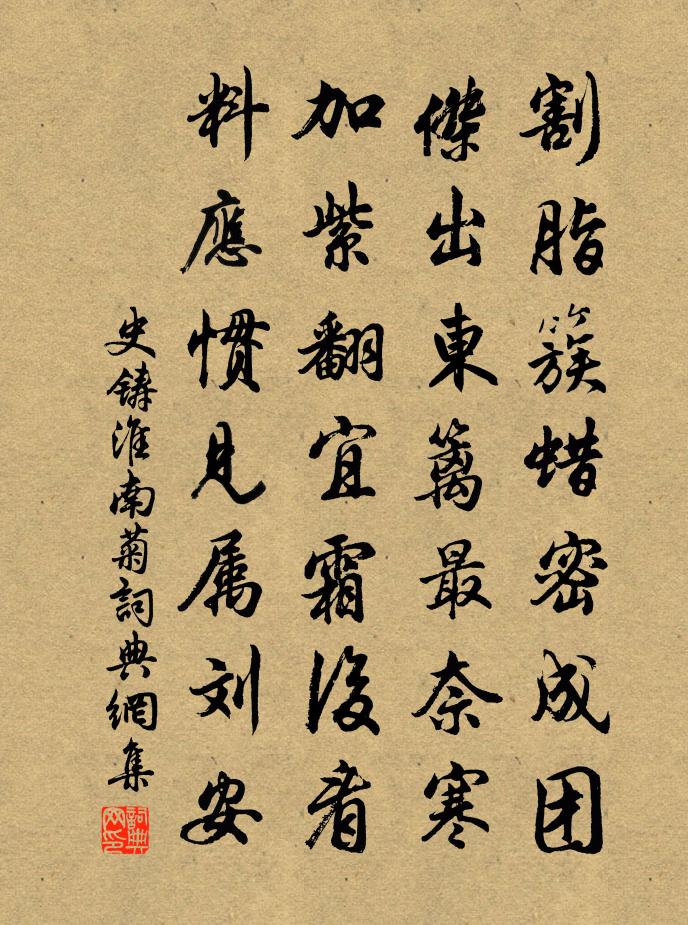 割脂簇蜡密成团
傑出東籬最奈寒
加紫翻宜霜後看
料應慣見属刘安
史鑄淮南菊詞典網集
詞典網印